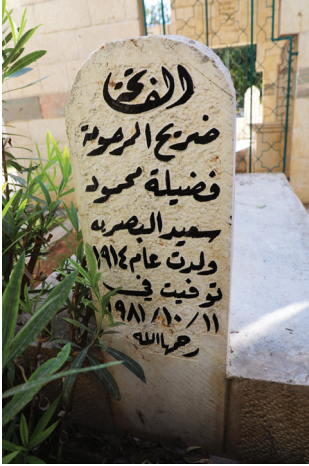 الفاتحة
ضريح المرحومة
فضيلة محمود
سعيد البصريه
ولدت عام ١٩١٤
توفيت في
١١/١٠/١٩٨١
رحمها الله